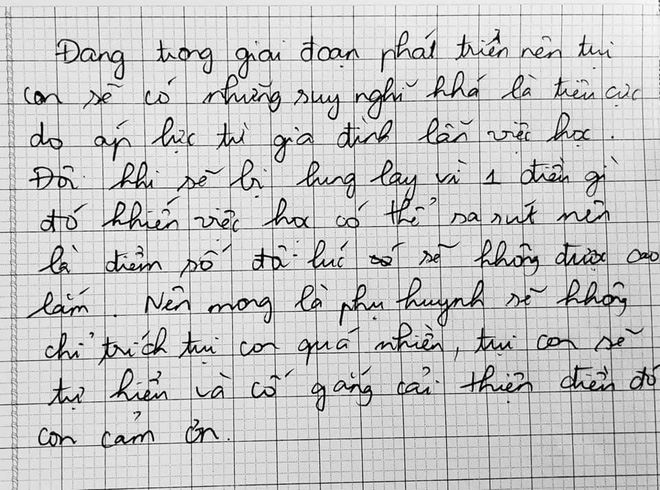 Đang trong giai đoạn phát triển nên tụi
con sẽ có những suy nghĩ khá là tiêu cực
do áp lực từ gia đình lẫn việc học.
Đôi khi sẽ bị lung lay vì 1 điều gì
đó khiến việc học có thể sa sút nên
là điểm số đôi lúc sẽ không được cao
lắm. Nên mong là phụ huynh sẽ không
chỉ trích tụi con quá nhiều, tụi con sẽ
tự hiểu và cố gắng cải thiện điều đó
con cảm ơn.